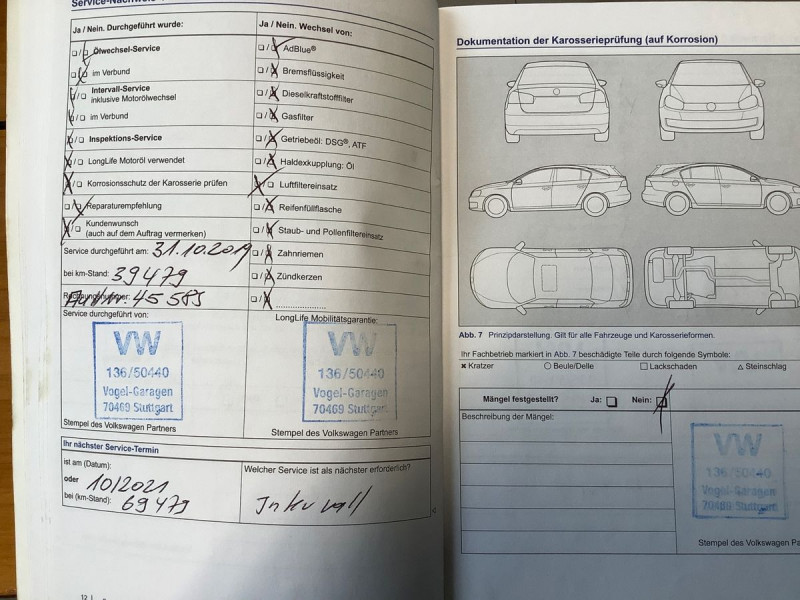 Service-Nachweis
Ja / Nein. Durchgeführt wurde:
Ölwechsel-Service
im Verbund
Intervall-Service
inklusive Motorölwechsel
im Verbund
Inspektions-Service
LongLife Motoröl verwendet
Korrosionsschutz der Karosserie prüfen
Reparaturempfehlung
Kundenwunsch
(auch auf dem Auftrag vermerken)
Service durchgeführt am: 31.10.2019
bei km-Stand: 39479
Rechnungsnummer: 45585
Service durchgeführt von:
VW
136/50440
Vogel-Garagen
70469 Stuttgart
Stempel des Volkswagen Partners
Ja / Nein. Wechsel von:
AdBlue®
Bremsflüssigkeit
Dieselkraftstofffilter
Gasfilter
Getriebeöl: DSG®, ATF
Haldexkupplung: Öl
Luftfiltereinsatz
Reifenfüllflasche
Staub- und Pollenfiltereinsatz
Zahnriemen
Zündkerzen
LongLife Mobilitätsgarantie:
VW
136/50440
Vogel-Garagen
70469 Stuttgart
Stempel des Volkswagen Partners
Ihr nächster Service-Termin
ist am (Datum):
10/2021
oder
bei (km-Stand): 69479
Welcher Service ist als nächster erforderlich?
Intervall
12
Dokumentation der Karosserieprüfung (auf Korrosion)
Abb. 7 Prinzipdarstellung. Gilt für alle Fahrzeuge und Karosserieformen.
Ihr Fachbetrieb markiert in Abb. 7 beschädigte Teile durch folgende Symbole:
Kratzer Beule/Delle Lackschaden Steinschlag
Mängel festgestellt? Ja: Nein:
Beschreibung der Mängel:
VW
136/50440
Vogel-Garagen
70469 Stuttgart
Stempel des Volkswagen Pa